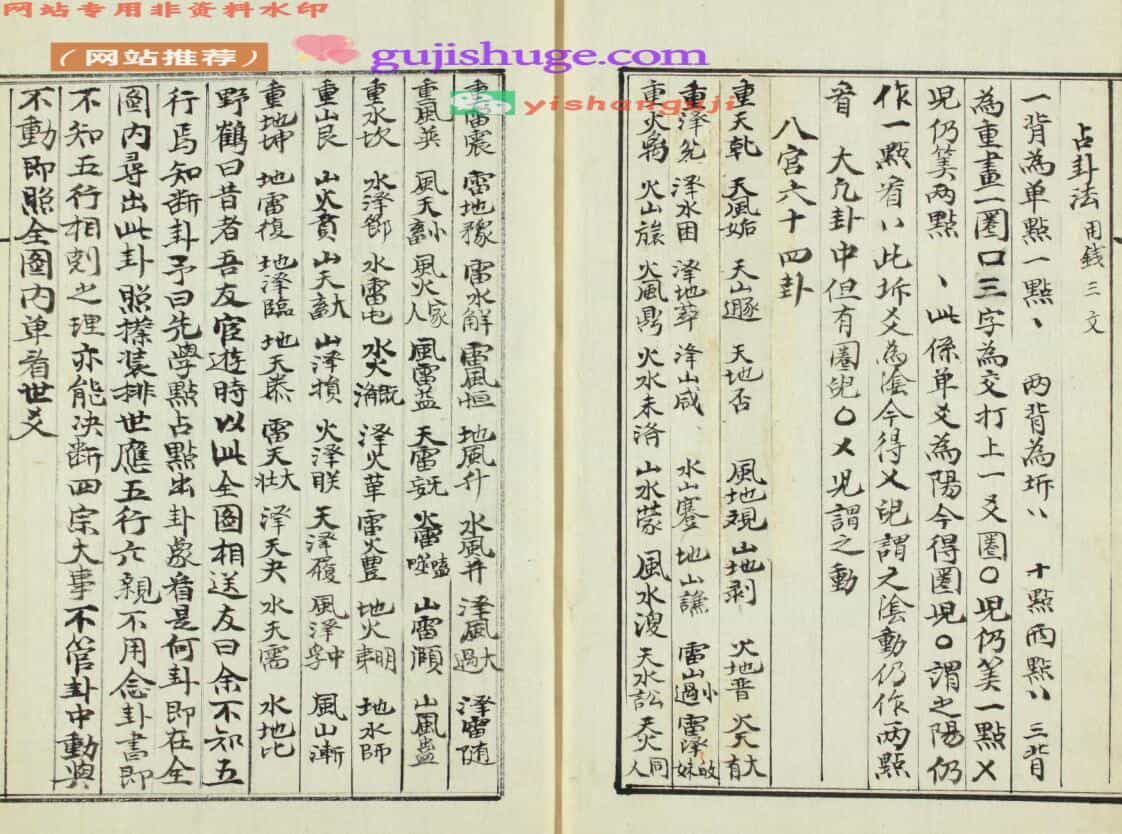 网站专用非资料水印
(网站推荐)
gujishuge.com
yishanguji
占卦法 用錢三文
一背為单點一點丶 两背為坼〃 十點两點〃 三背
為重畫一圈口三字為交打上一乂圈〇児仍美一點乂
児仍筭两點 丶此係单爻為陽今得圈児〇謂之陽仍
作一點看〃此坼爻為陰今得乂児謂之陰動仍作两點
看 大凢卦中但有圈児〇乂児謂之動
八宫六十四卦
重天乾 天風姤 天山遯 天地否 風地观 山地剥 火地晋 火天大有
重泽兑 泽水困 泽地萃 泽山咸 水山蹇 地山謙 雷山小過 雷泽㱕妹
重火离 火山旅 火風鼎 火水未济 山水蒙 風水渙 天水訟 天火同人
重雷震 雷地豫 雷水解 雷風恒 地風升 水風井 泽風大過 泽雷随
重風巽 風天小畜 風火家人 風雷益 天雷无妄 火雷噬嗑 山雷頤 山風蠱
重水坎 水泽節 水雷屯 水火既濟 泽火革 雷火豐 地火明夷 地水師
重山艮 山火賁 山天大畜 山泽損 火泽睽 天泽履 風泽中孚 風山漸
重地坤 地雷復 地泽臨 地天泰 雷天大壮 泽天夬 水天需 水地比
野鶴曰昔者吾友官遊時以此全圖相送友曰余不知五
行焉知断卦予曰先學點占點出卦象看是何卦即在全
圖内尋出此卦照擦装排世應五行六親不用念卦書即
不知五行相剋之理亦能决断四宗大事不管卦中動與
不動即照全圖内单看世爻